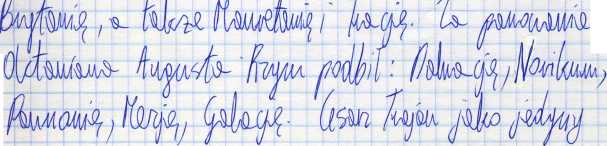 Brytanię, a także Mauretanię i Trację. Za panowania
Oktawiana Augusta Rzym podbił: Dalmację, Norikum,
Pannonię, Mezję, Galację. Cesarz Trajan jako jedyny